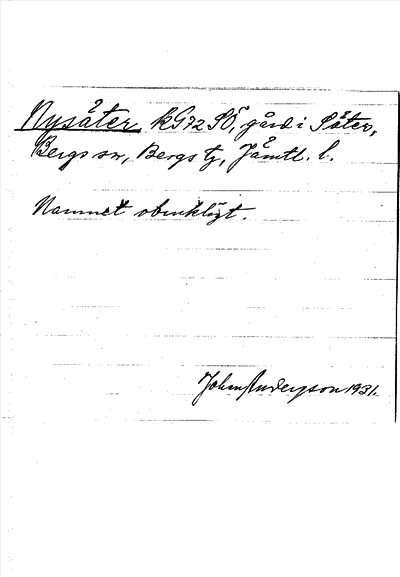 Nysåter kG72SÖ, gård i Såter,
Bergs sn, Bergs tg, Jämtl. l.
Namnet obrukligt.
John Anderson 1931.